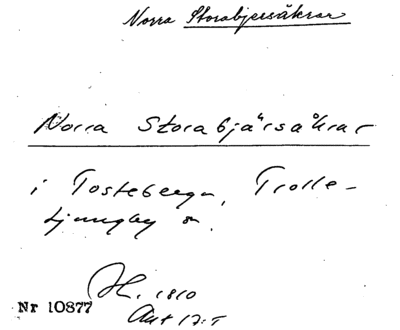 Norra Storabjersåkrar
Norra Storabjärsåkrar
i Tosteberga, Trolle-
Ljungby sn.
H. 1810
Nr 10877
Akt 17:I